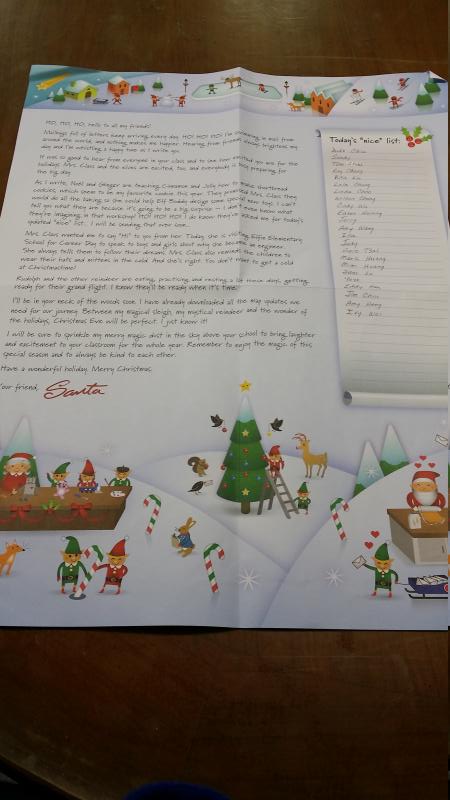 HO, HO, HO, hello to all my friends!
Mailbags full of letters keep arriving every day. HO! HO! HO! I'm receiving mail from
around the world, and nothing makes me happier. Hearing from friends always brightens my
day and I'm whistling a happy tune as I write you.
It was so good to hear from everyone in your class and to see how excited you are for the
holidays. Mrs. Claus and the elves are excited, too, and everybody is busy preparing for
the big day.
As I write, Noel and Ginger are teaching Cinnamon and Jolly how to make shortbread
cookies, which seems to be my favourite cookie this year. They promised Mrs. Claus they
would do all the baking so she could help Elf Buddy design some special new toys. I can't
tell you what they are because it's going to be a big surprise – I don't even know what
they're imagining in that workshop! HO! HO! HO! I do know they've asked me for today's
updated "nice" list. I will be sending that over now.
Mrs. Claus wanted me to say "Hi" to you from her. Today she is visiting Elfie Elementary
School for Career Day to speak to boys and girls about why she became an engineer.
She always tells them to follow their dreams. Mrs. Claus also reminds the children to
wear their hats and mittens in the cold. And she's right. You don't want to get a cold
at Christmastime!
Rudolph and the other reindeer are eating, practising and resting a lot these days, getting
ready for their grand flight. I know they'll be ready when it's time.
I'll be in your neck of the woods soon. I have already downloaded all the map updates we
need for our journey. Between my magical sleigh, my mystical reindeer and the wonder of
the holidays, Christmas Eve will be perfect. I just know it!
I will be sure to sprinkle my merry magic dust in the sky above your school to bring laughter
and excitement to your classroom for the whole year. Remember to enjoy the magic of this
special season and to always be kind to each other.
Have a wonderful holiday. Merry Christmas.
Your friend, Santa
Today's "nice" list:
Judy Chiu
Sandy
Roy Chang
Rita Liu
Lulu Chung
Linda Chen
Cody Wu
Jerry
Amy Wang
Ella
Judy
Mark Huang
Mian Huang
Jim Chou
Amy Wang
Ivy Wei